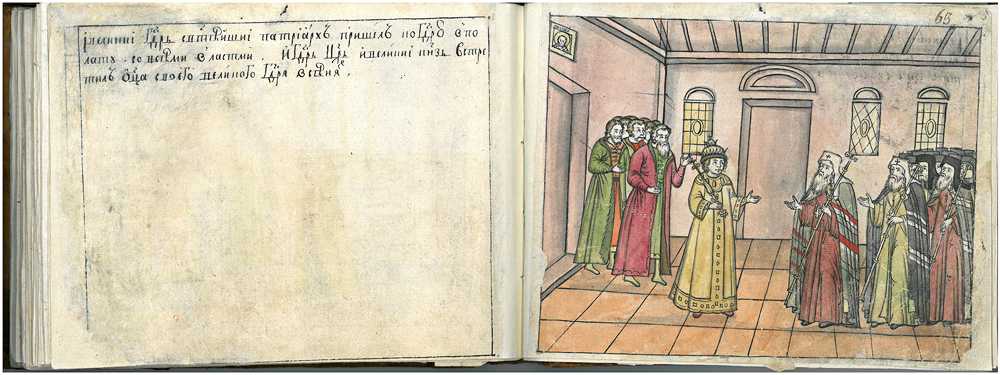 івеликиі Гдрь святѣишиі патриархъ пришелъ по Гдря в по
лату со всѣми властми. И Гдрь Црь и великиі кнзь встре
тилъ отца своего великого Гдря в сенях.